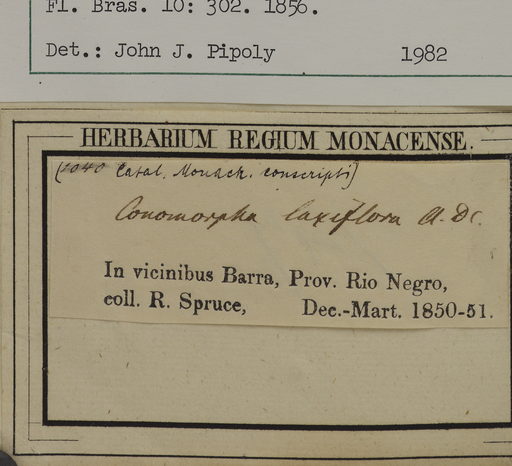 Fl. Bras. 10: 302. 1856.
Det.: John J. Pipoly 1982
HERBARIUM REGIUM MONACENSE.
(1040 Catal. Monach. conscripti)
Conomorpha laxiflora A. DC.
In vicinibus Barra, Prov. Rio Negro,
coll. R. Spruce, Dec.-Mart. 1850-51.